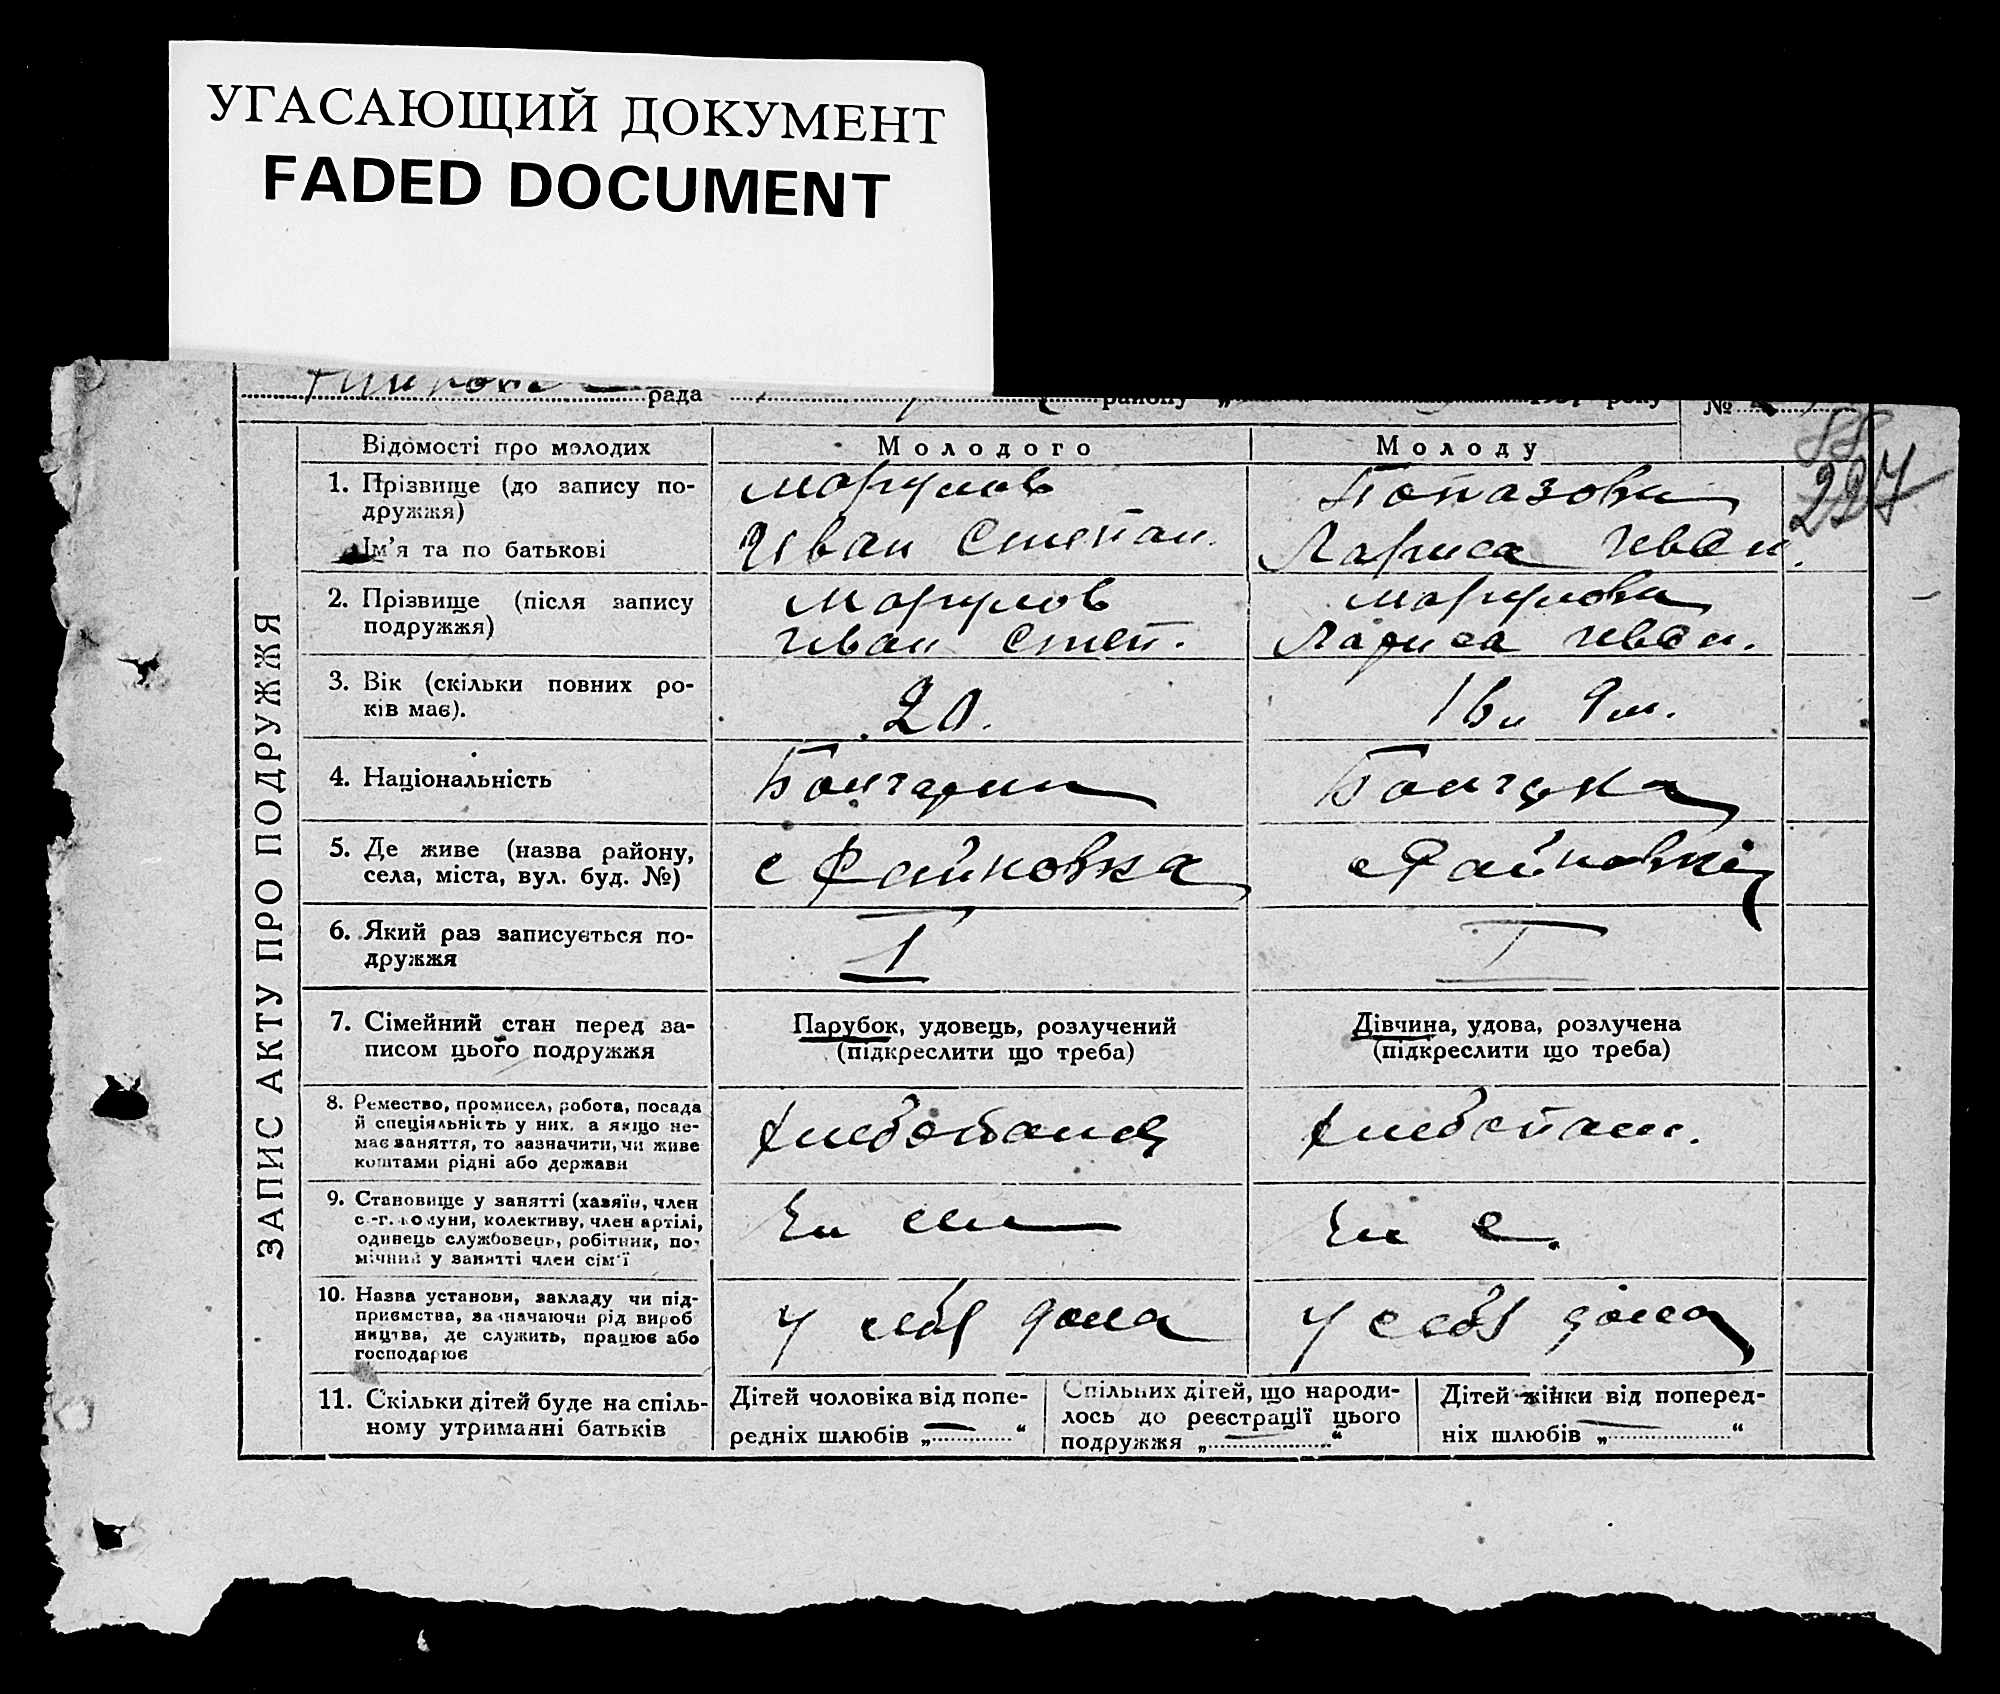 УГАСАЮЩИЙ ДОКУМЕНТ
FADED DOCUMENT
рада району року №
227
ЗАПИС АКТУ ПРО ПОДРУЖЖЯ
Відомості про молодих
Молодого
Молоду
1. Прізвище (до запису по-
дружжя)
Ім'я та по батькові
Марулов
Иван Степан.
Топазова
Лариса Иван.
2. Прізвище (після запису
подружжя)
Марулов
Иван Степ.
Марулова
Лариса Иван.
3. Вік (скільки повних ро-
ків має).
20.
4. Національність
Болгарин
Болгарка
5. Де живе (назва району,
села, міста, вул. буд. №)
с Райновка
с Райновка
6. Який раз записується по-
дружжя
I
I
7. Сімейний стан перед за-
писом цього подружжя
Парубок, удовець, розлучений
(підкреслити що треба)
Дівчина, удова, розлучена
(підкреслити що треба)
8. Ремество, промисел, робота, посада
й спеціяльність у них, а якщо не-
має заняття, то зазначити, чи живе
коштами рідні або держави
9. Становище у занятті (хазяїн, член
с.-г. комуни, колективу, член артілі,
одинець службовець, робітник, по-
мічний у занятті член сім'ї
10. Назва установи, закладу чи під-
приємства, зазначаючи рід вироб
ництва, де служить, працює або
господарює
У себя дома
У себя дома
11. Скільки дітей буде на спіль-
ному утриманні батьків
Дітей чоловіка від попе-
редніх шлюбів „ — “
Спільних дітей, що народи-
лось до реєстрації цього
подружжя „ — “
Дітей жінки від поперед-
ніх шлюбів „ — “